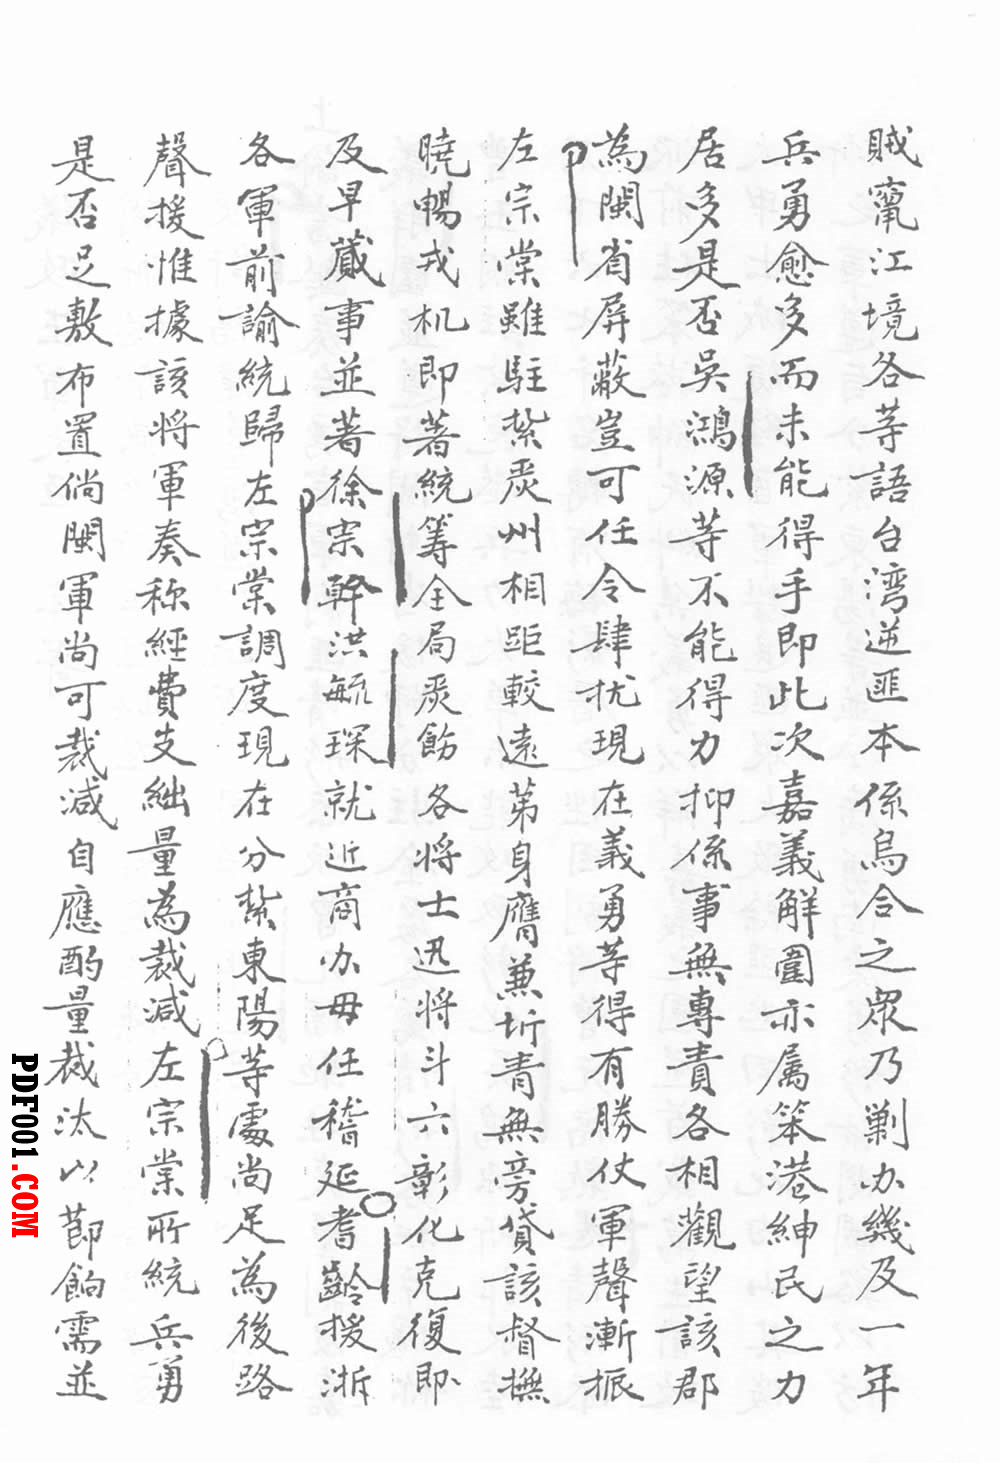 賊竄江境各等語台湾逆匪本係烏合之眾乃剿办幾及一年
兵勇愈多而未能得手即此次嘉義解圍亦属笨港紳民之力
居多是否吳鴻源等不能得力抑係事無專責各相觀望該郡
為閩省屏蔽豈可任令肆扰現在義勇等得有勝仗軍聲漸振
左宗棠雖駐紮衢州相距較遠第身膺兼圻責無旁貸該督撫
曉暢戎机即著統筹全局飭各将士迅将斗六彰化克復即
及早蕆事並著徐宗幹洪毓琛就近商办毋任稽延耆齡援浙
各軍前諭統歸左宗棠調度現在分紮東陽等處尚足為後路
聲援惟據該将軍奏称經費支絀量為裁减左宗棠所統兵勇
是否足敷布置倘閩軍尚可裁减自應酌量裁汰以節餉需並
PDF001.COM